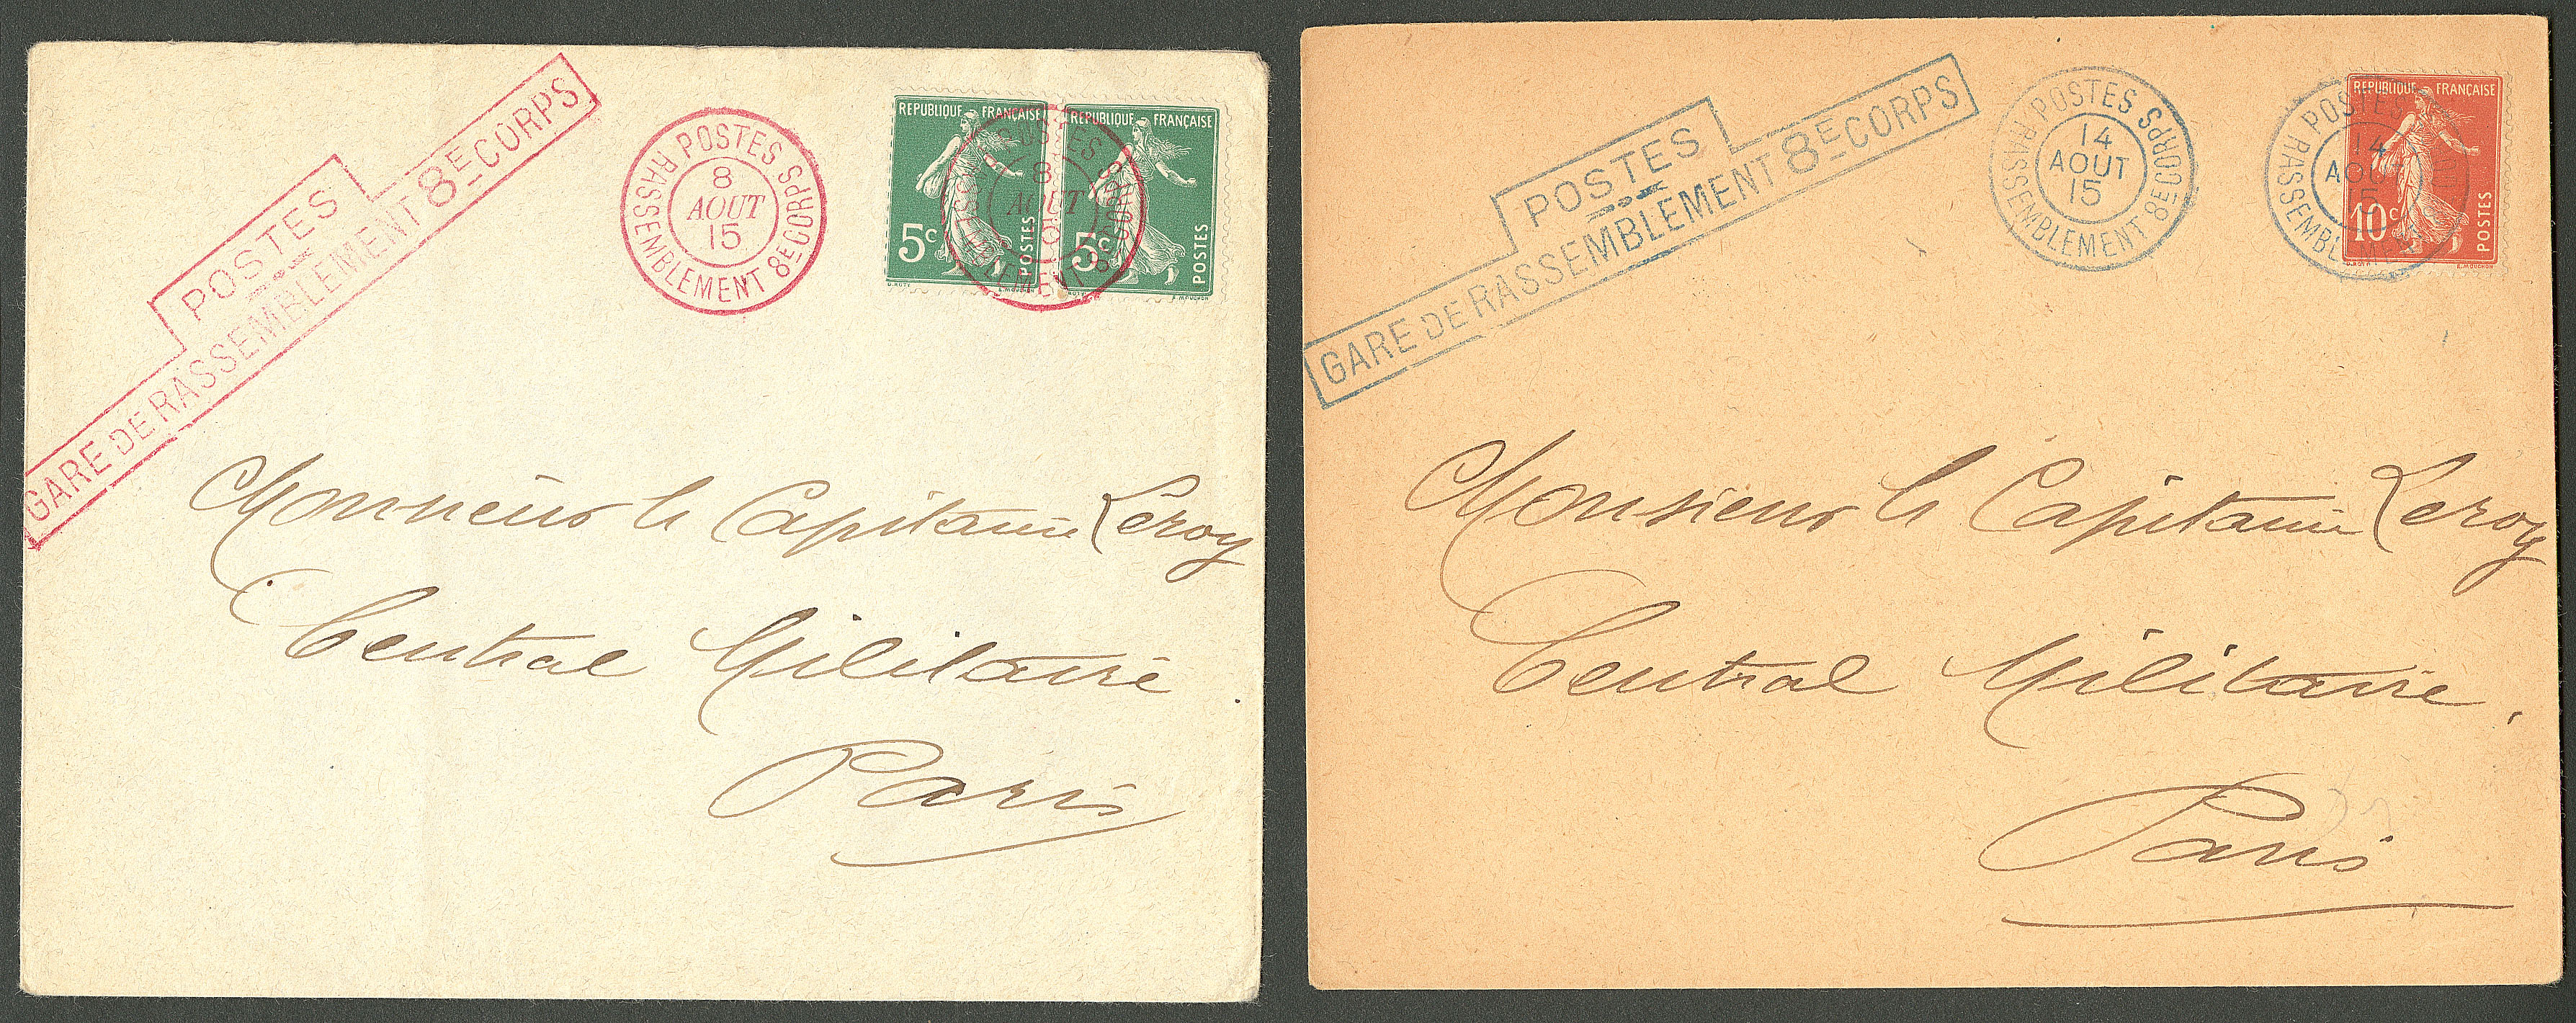 POSTES
GARE DE RASSEMBLEMENT 8E CORPS
POSTES
RASSEMBLEMENT 8E CORPS
8
AOUT
15
REPUBLIQUE FRANÇAISE
5c
POSTES
REPUBLIQUE FRANÇAISE
5c
POSTES
POSTES
8
AOUT
Monsieur le Capitaine Leroy
Central Militaire
Paris
POSTES
GARE DE RASSEMBLEMENT 8E CORPS
POSTES
RASSEMBLEMENT 8E CORPS
14
AOUT
15
POSTES
RASSEMBLEMENT
14
AOUT
REPUBLIQUE FRANÇAISE
10c
POSTES
E. MOUCHON
Monsieur le Capitaine Leroy
Central Militaire.
Paris